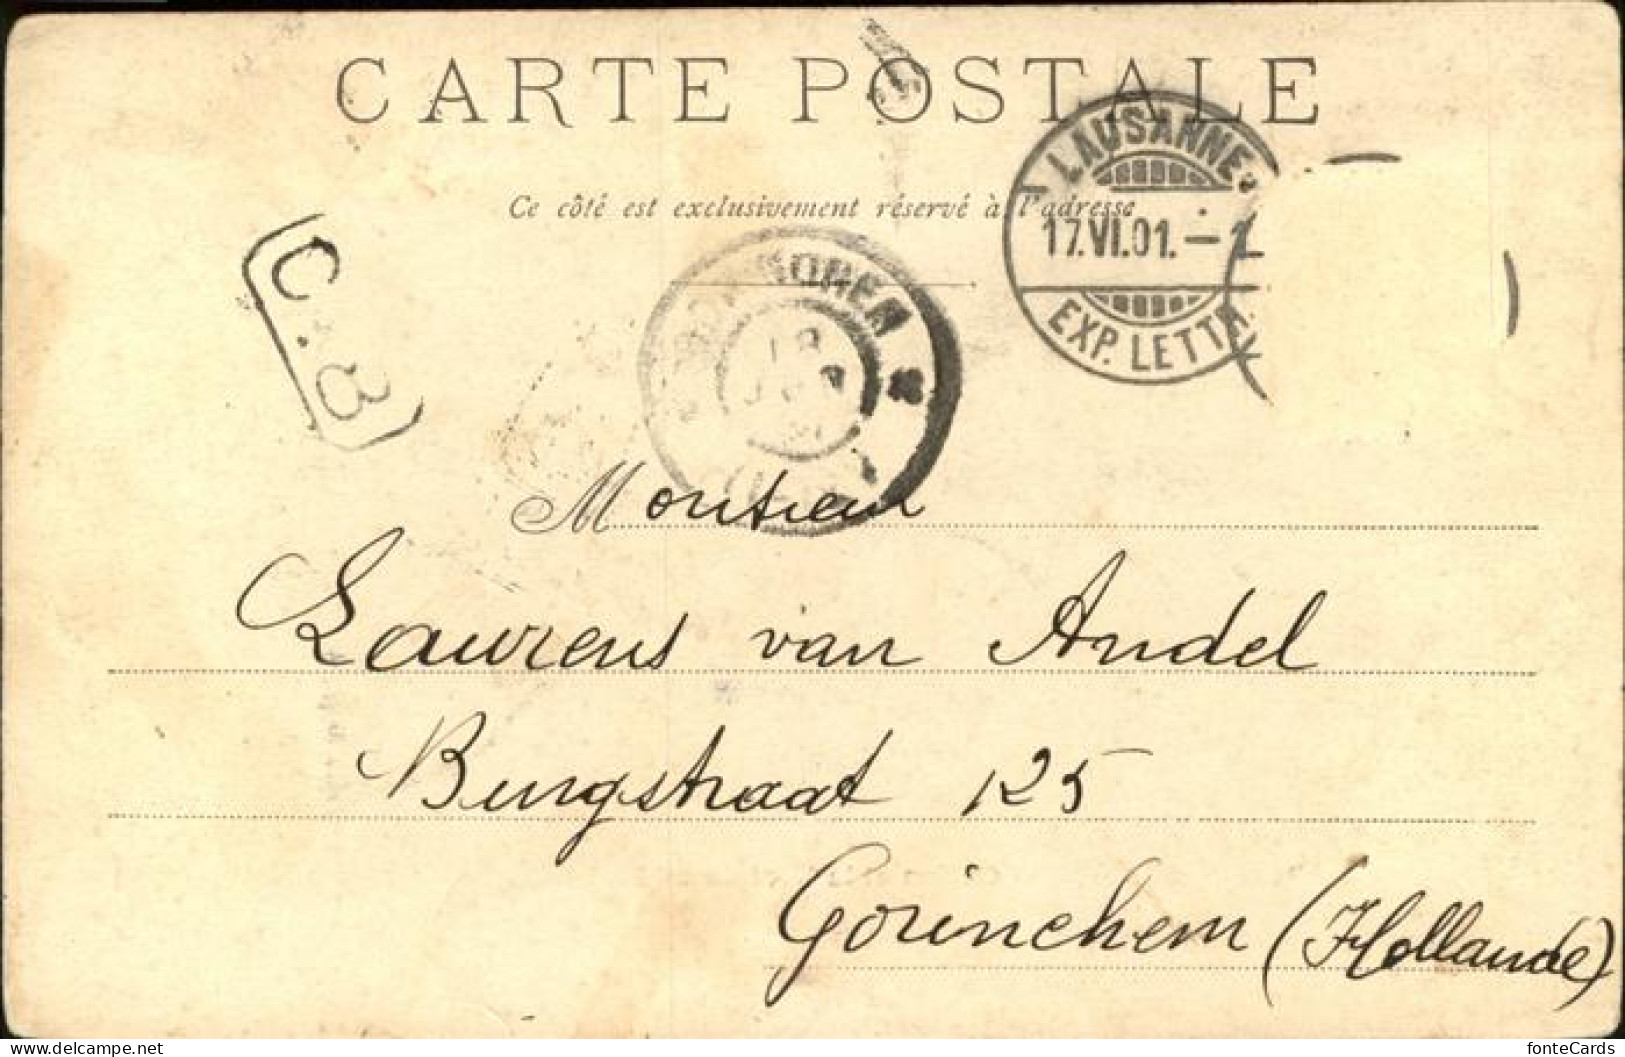 CARTE POSTALE
Ce côté est exclusivement réservé à l'adresse
LAUSANNE
17.VI.01.–1
EXP. LETTR
C.B
Monsieur
Laurens van Andel
Burgstraat 125
Gorinchem (Hollande)
fonteCards
www.delcampe.net